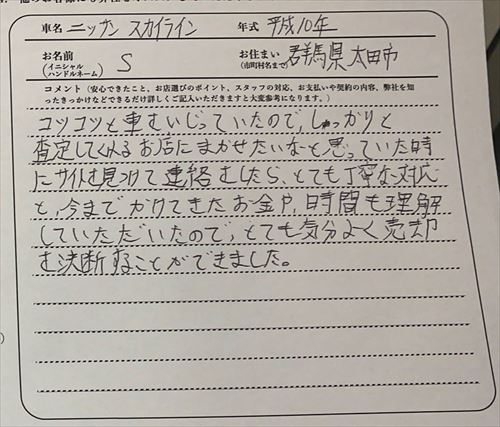 車名 ニッサン スカイライン 年式 平成10年
お名前 (イニシャル ハンドルネーム) S お住まい (市町村名まで) 群馬県太田市
コメント(安心できたこと、お店選びのポイント、スタッフの対応、お支払いや契約の内容、弊社を知
ったきっかけなどできるだけ詳しくご記入いただきますと大変参考になります。)
コツコツと車をいじっていたので、しっかりと
査定してくれるお店にまかせたいなと思っていた時
にサイトを見つけて連絡をしたら、とても丁寧な対応
と、今までかけてきたお金や、時間も理解
していただいたので、とても気分よく売却
を決断することができました。